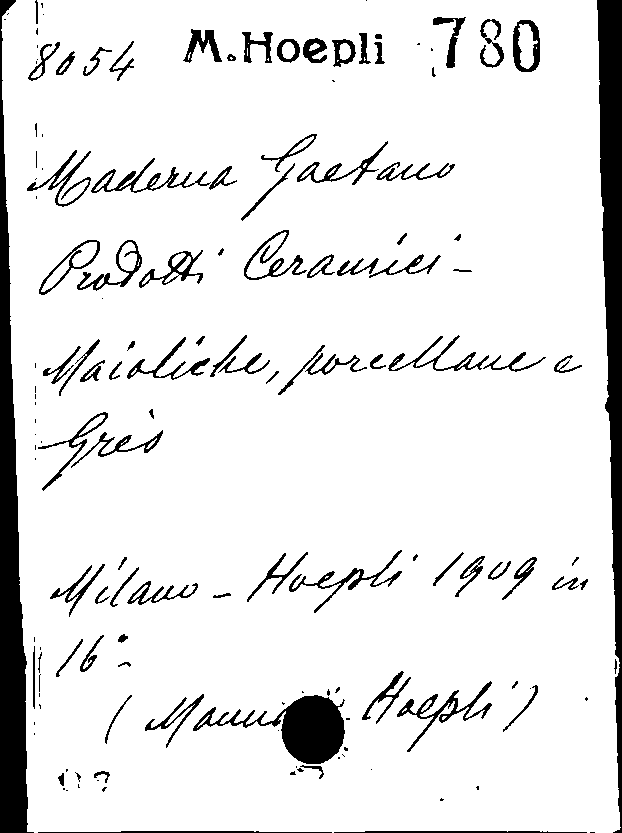 8054 M. Hoepli 780
Maderna Gaetano
Prodotti Ceramici -
Maioliche, porcellane e
Grès
Milano - Hoepli 1909 in
16° -
( Hoepli )